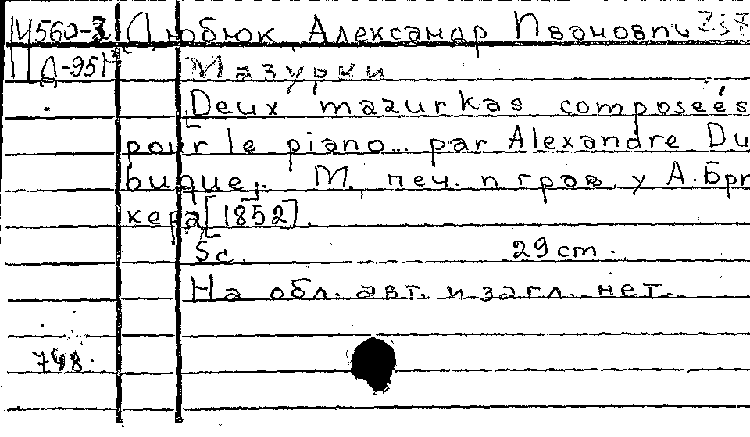 М560-3 Дюбюк, Александр Иванович
Д-951 Мазурки
Deux mazurkas composeés
pour le piano... par Alexandre Du
buque. М. печ. и грав. у А. Бри
кера [1852].
5 с. 29 cm.
На обл. авт. и загл. нет.
748.